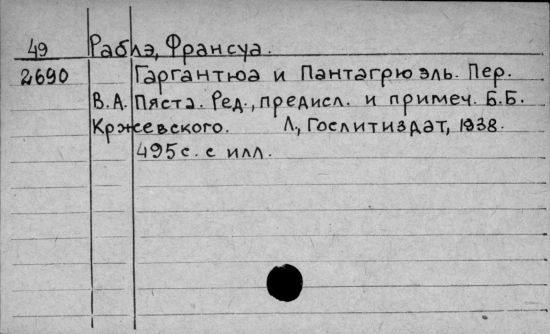 49 Раблэ, Франсуа.
2690 Гаргантюа и Пантагрюэль. Пер.
В.А. Пяста. Ред., предисл. и примеч. Б.Б.
Кржевского. Л, Гослитиздат, 1938.
495с. с илл.